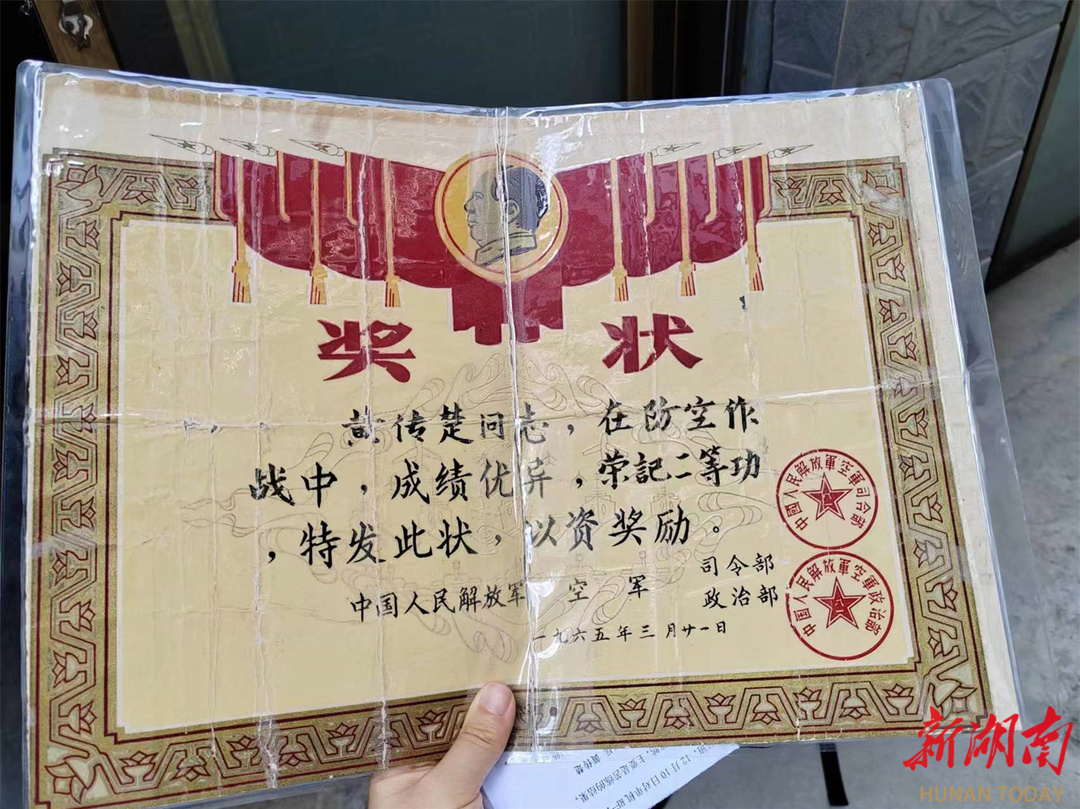 奖状
黄传楚同志，在防空作
战中，成绩优异，荣記二等功
，特发此状，以资奖励。
中国人民解放军 空军 司令部
政治部
一九六五年三月廿一日
中國人民解放軍空軍司令部
中國人民解放軍空軍政治部
新湖南
HUNAN TODAY